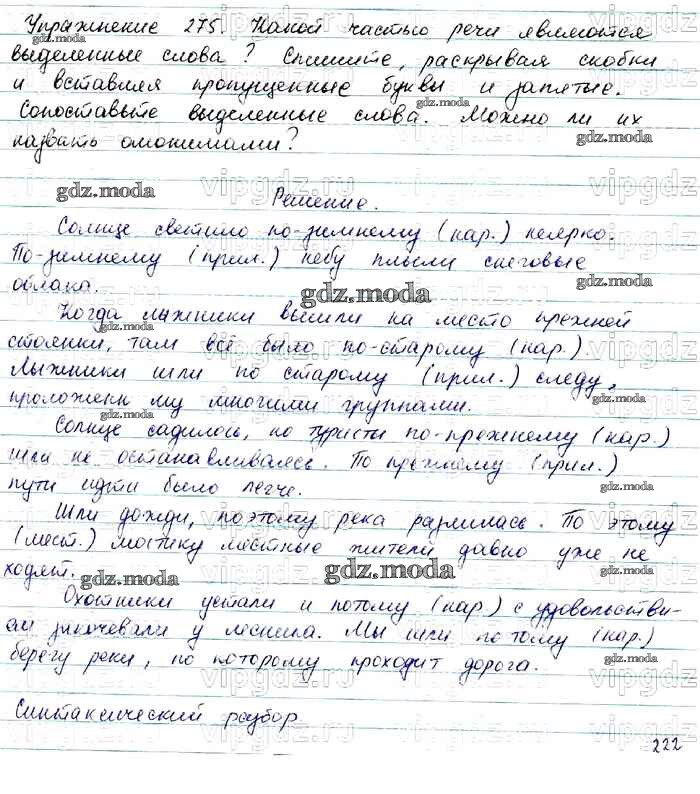 Упражнение 275. Какой частью речи являются
выделенные слова? Спишите, раскрывая скобки
и вставляя пропущенные буквы и запятые.
Сопоставьте выделенные слова. Можно ли их
назвать омонимами?
Решение.
Солнце светило по-зимнему (нар.) неярко.
По-зимнему (прил.) небу плыли снеговые
облака.
Когда лыжники вышли на место прежней
стоянки, там всё было по-старому (нар.).
Лыжники шли по старому (прил.) следу,
проложенн му многими группами.
Солнце садилось, но туристы по-прежнему (нар.)
шли не останавливаясь. По прежнему (прил.)
пути идти было легче.
Шли дожди, поэтому река разлилась. По этому
(мест.) мостику местные жители давно уже не
ходят.
Охотники устали и потому (нар.) с удовольстви-
ем заночевали у лесника. Мы шли по тому (нар.)
берегу реки, по которому проходит дорога.
Синтаксический разбор
222
gdz.moda
vipgdz.ru